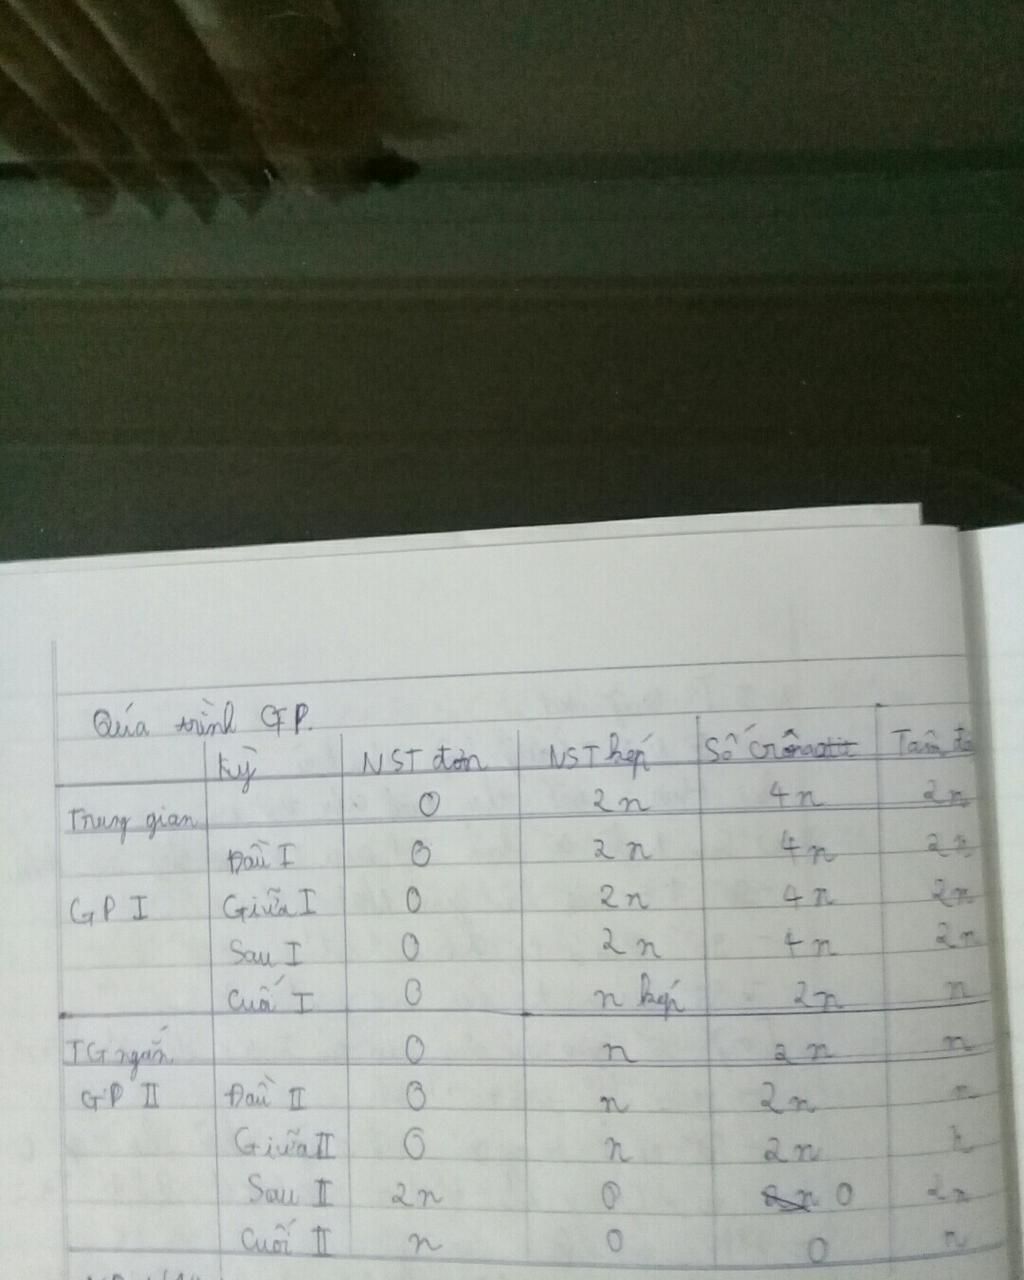 Quá trình GP.
Kỳ NST đơn NST kép Số crômatit Tâm độ
Trung gian 0 2n 4n 2n
Đầu I 0 2n 4n 2n
GP I Giữa I 0 2n 4n 2n
Sau I 0 2n 4n 2n
Cuối I 0 n kép 2n n
TG ngắn 0 n 2n n
GP II Đầu II 0 n 2n n
Giữa II 0 n 2n n
Sau II 2n 0 0 2n
Cuối II n 0 0 n